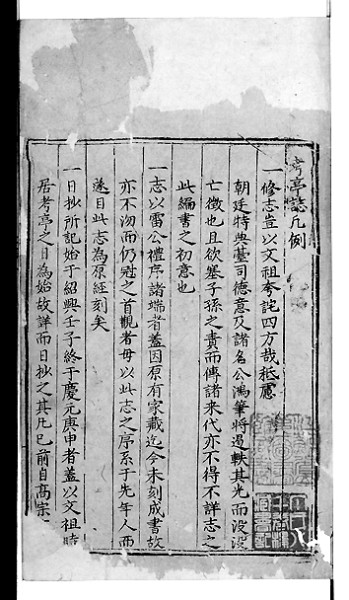 考亭誌凡例
一修志豈以文祖夸詫四方哉秪慮
朝廷特典臺司德意及諸名公鴻筆將遏軼其光而沒沒
亡徵也且欲塞子孫之責而傳諸来代亦不得不詳志之
此編書之初意也
一志以雷公禮序諸端者蓋因原有家藏迄今未刻成書故
亦不沕而仍冠之首觀者毋以此志之序系于先年人而
遂目此志為原經刻矣
一日抄所記始于紹興壬子終于慶元庚申者蓋以文祖時
居考亭之日為始故詳而日抄之其凡已前自高宗